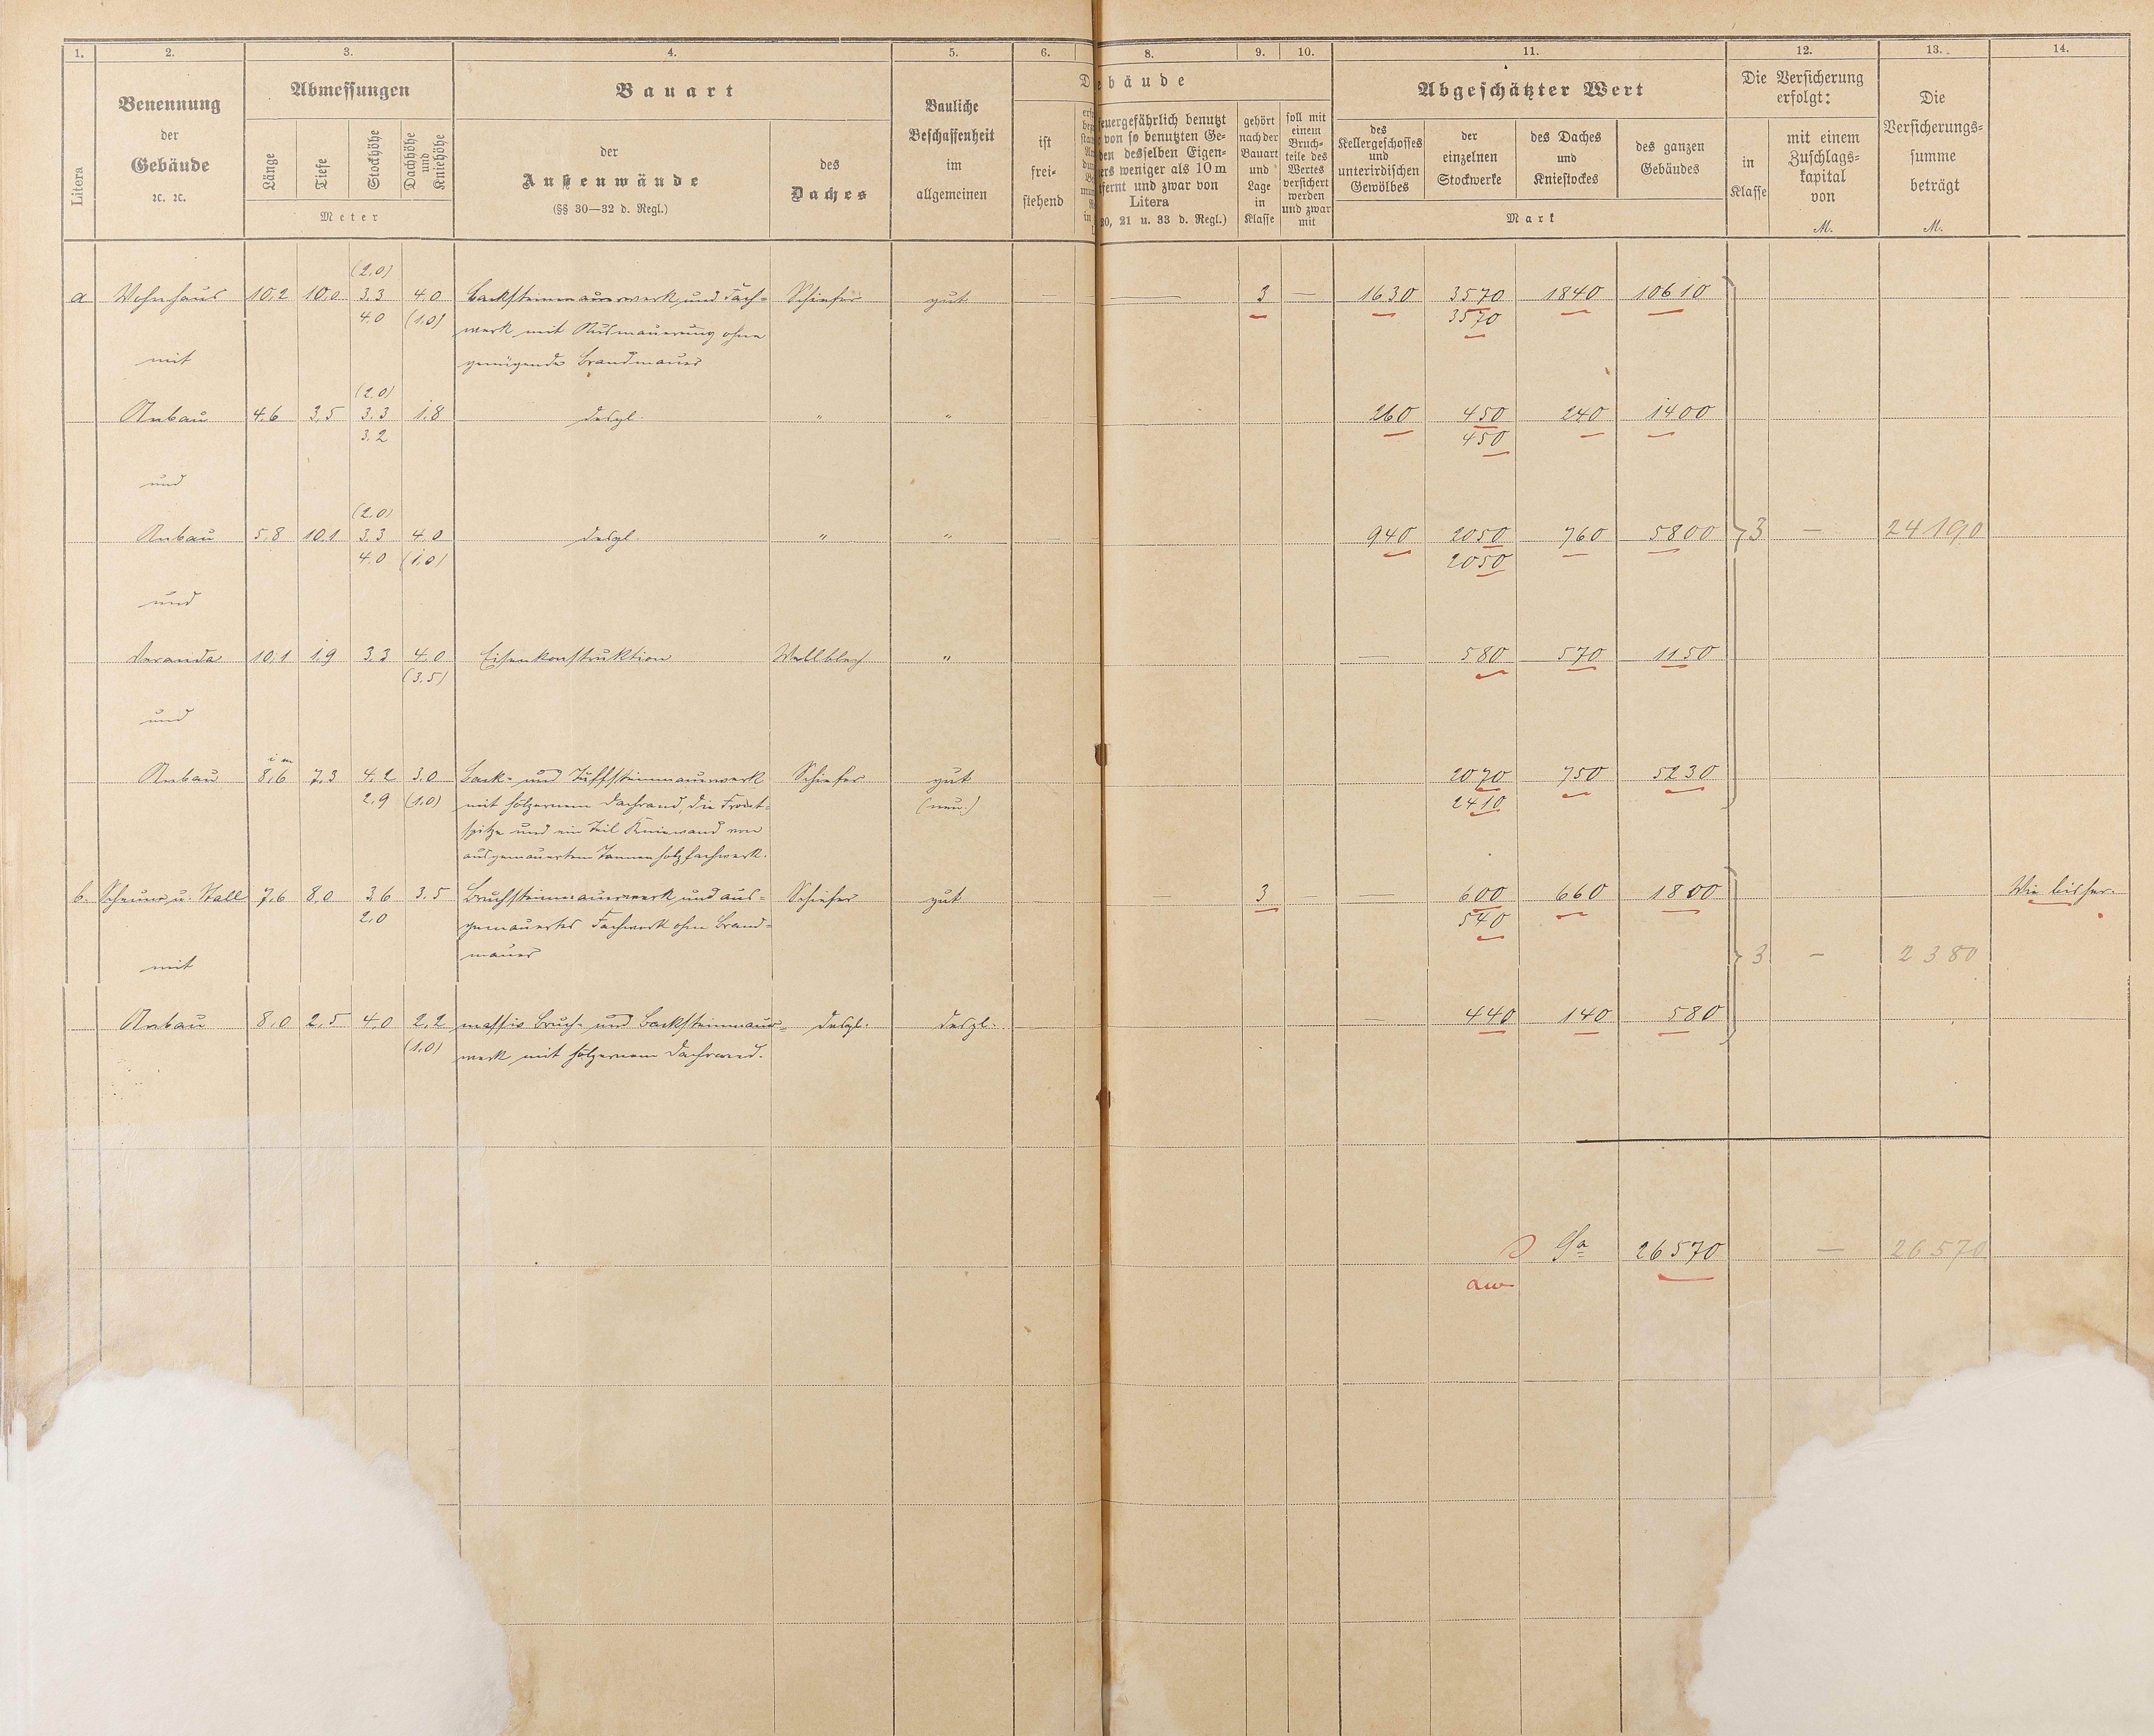 1. 2. 3. 4. 5. 6. 8. 9. 10. 11. 12. 13. 14.
Litera
Benennung
der
Gebäude
ꝛc. ꝛc.
Abmessungen
Länge
Tiefe
Stockhöhe
Dachhöhe
und
Kniehöhe
Meter
Bauart
der
Außenwände
(§§ 30—32 d. Regl.)
des
Daches
Bauliche
Beschaffenheit
im
allgemeinen
ist
frei-
stehend
ebäude
feuergefährlich benutzt
von so benutzten Ge-
den desselben Eigen-
ers weniger als 10 m
fernt und zwar von
Litera
20, 21 u. 33 d. Regl.)
gehört
nach der
Bauart
und
Lage
in
Klasse
soll mit
einem
Bruch-
teile des
Wertes
versichert
werden
und zwar
mit
Abgeschätzter Wert
des
Kellergeschosses
und
unterirdischen
Gewölbes
der
einzelnen
Stockwerke
des Daches
und
Kniestockes
des ganzen
Gebäudes
Mark
Die Versicherung
erfolgt:
in
Klasse
mit einem
Zuschlags-
kapital
von
M.
Die
Versicherungs-
summe
beträgt
M.
(2,0)
a Wohnhaus 10,2 10,0 3,3 4,0 Backsteinmauerwerk und Fach- Schiefer gut — — 3 — 1630 3570 1840 10610
4,0 (1,0) werk mit Ausmauerung ohne 3570
mit genügende Brandmauer
(2,0)
Anbau 4,6 3,5 3,3 1,8 desgl. " " 260 450 240 1400
3,2 450
und
(2,0)
Anbau 5,8 10,1 3,3 4,0 desgl. " " 940 2050 760 5800 } 3 — 24190
4,0 (1,0) 2050
und
Veranda 10,1 1,9 3,3 4,0 Eisenkonstruktion Wellblech " — 580 570 1150
(3,5)
und
i m
Anbau 8,6 7,3 4,2 3,0 Back- und Tuffsteinmauerwerk Schiefer gut 2070 750 5230
2,9 (1,0) mit hölzernem Dachrand, die Front- (neu.) 2410
spitze und ein Teil Kniewand von
ausgemauertem Tannenholzfachwerk.
b. Scheuer u. Stall 7,6 8,0 3,6 3,5 Bruchsteinmauerwerk und aus- Schiefer gut — 3 — — 600 660 1800 Wie bisher.
2,0 gemauertes Fachwerk ohne Brand- 540
mit mauer } 3 — 2380
Anbau 8,0 2,5 4,0 2,2 massiv Bruch- und Backsteinmauer- desgl. desgl. — 440 140 580
(1,0) werk mit hölzernem Dachrand.
Sa 26570 — 26570